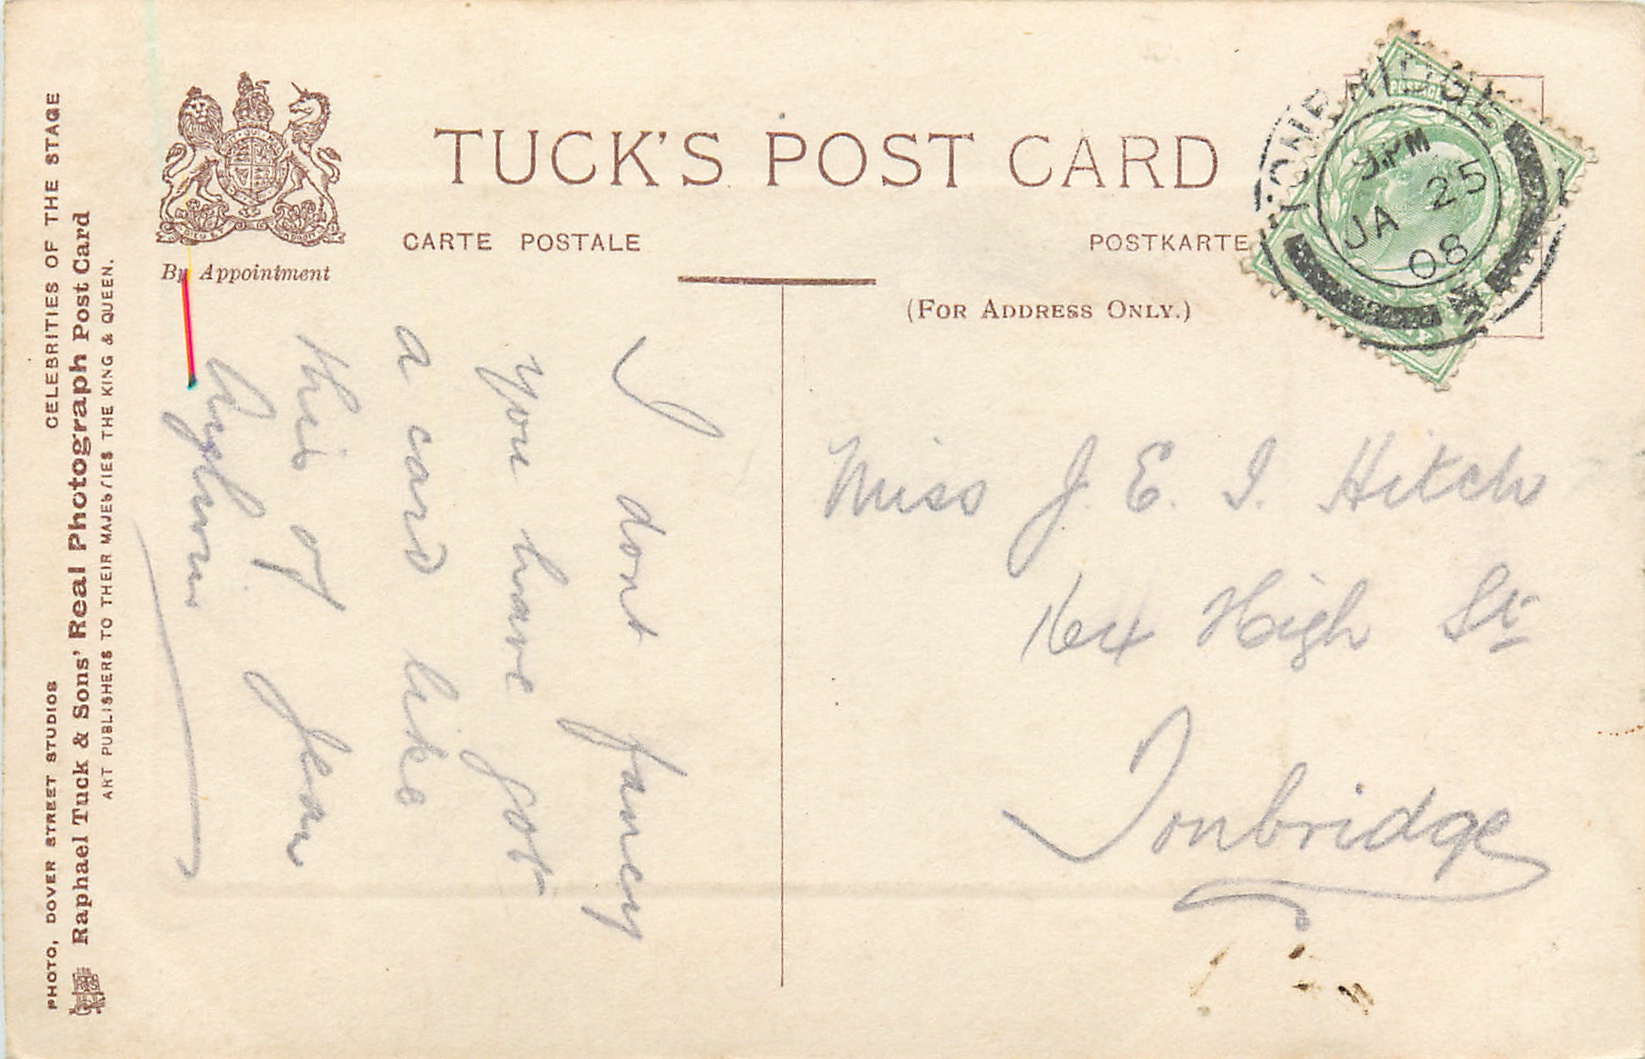 TUCK'S POST CARD
CARTE POSTALE
POSTKARTE
(FOR ADDRESS ONLY.)
By Appointment
CELEBRITIES OF THE STAGE
PHOTO, DOVER STREET STUDIOS
Raphael Tuck & Sons' Real Photograph Post Card
ART PUBLISHERS TO THEIR MAJESTIES THE KING & QUEEN.
TONBRIDGE
PM
JA 25
08
I dont fancy
you have got
a card like
this of Jean
Aylwin
Miss J. E. I. Hitch
164 High St
Tonbridge